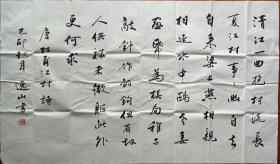 清江一曲抱村流長
夏江村事事幽自去
自来梁上燕相親
相近水中鷗老妻
畫紙為棋局稚子
敲針作釣鉤但有故
人供祿米微軀此外
更何求
唐杜甫江村詩
己卯秋月逸山書